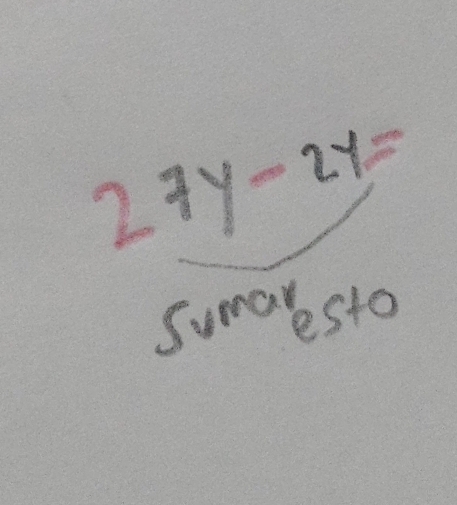 27y - 2y =
Sumar esto